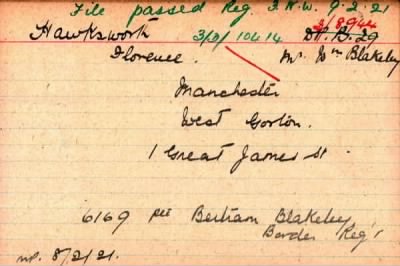 File passed Reg. 3.R.W. 9.2.21
Hawksworth 3/3/10414 2/8944
Florence. D.P. B. 29
Mr. Wm Blakeley
Manchester
West Gorton.
1 Great James St
6169 Pte Bertram Blakeley
Border Reg't
8/2/21.